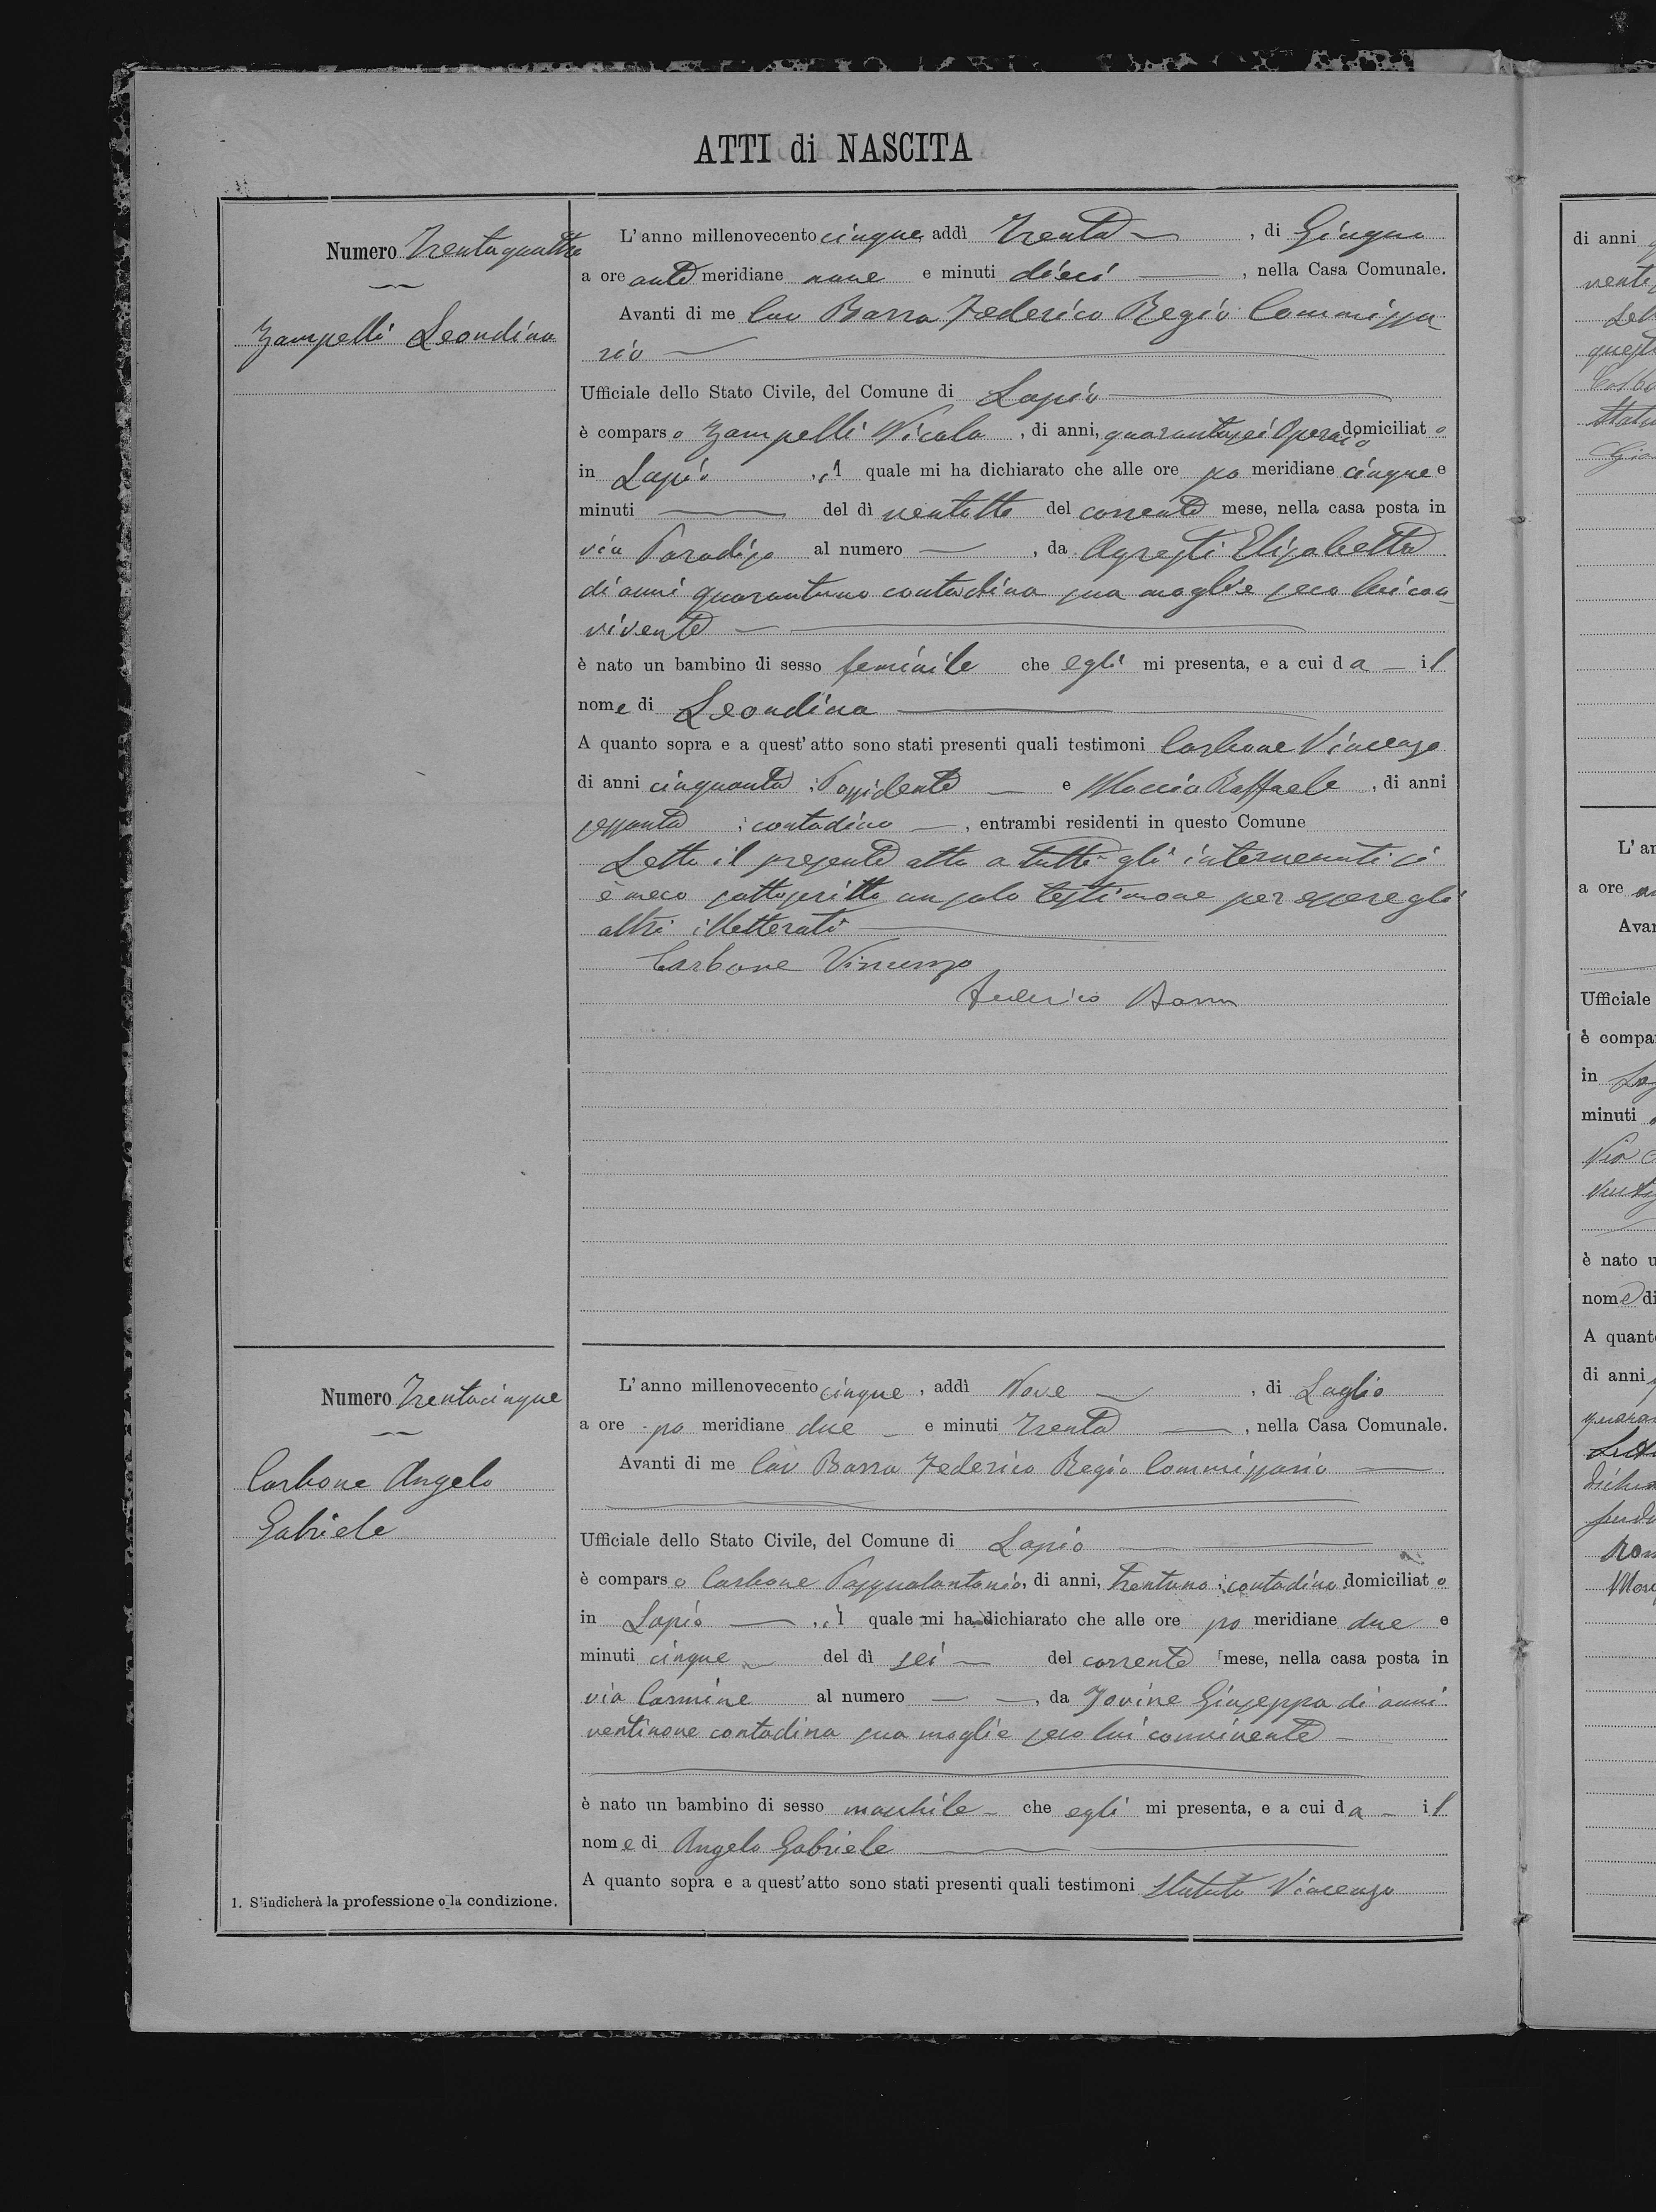 ATTI di NASCITA
Numero Trentaquattro
Zampelli Leondina
L'anno millenovecento cinque, addì Trenta, di Giugno
a ore ante meridiane nove e minuti dieci, nella Casa Comunale.
Avanti di me Cav Barra Federico Regio Commissa
rio
Ufficiale dello Stato Civile, del Comune di Lapio
è comparso Zampelli Nicola, di anni, quarantasei Operaio domiciliato
in Lapio, il quale mi ha dichiarato che alle ore po meridiane cinque e
minuti — del dì ventotto del corrente mese, nella casa posta in
via Paradiso al numero —, da Agresti Elisabetta
di anni quarantuno contadina sua moglie seco lui con
vivente
è nato un bambino di sesso feminile che egli mi presenta, e a cui da — il
nome di Leondina
A quanto sopra e a quest'atto sono stati presenti quali testimoni Carbone Vincenzo
di anni cinquanta, Possidente e Maccia Raffaele, di anni
sessanta, contadino —, entrambi residenti in questo Comune
Letto il presente atto a tutti gli intervenuti si
è meco sottoscritto un solo testimone per essere gli
altri illetterati
Carbone Vincenzo
Federico Barra
Numero Trentacinque
Carbone Angelo
Gabriele
L'anno millenovecento cinque, addì Nove, di Luglio
a ore po meridiane due e minuti Trenta, nella Casa Comunale.
Avanti di me Cav Barra Federico Regio Commissario
Ufficiale dello Stato Civile, del Comune di Lapio
è comparso Carbone Pasqualantonio, di anni, trentuno, contadino, domiciliato
in Lapio, il quale mi ha dichiarato che alle ore po meridiane due e
minuti cinque del dì sei del corrente mese, nella casa posta in
via Carmine al numero —, da Jovine Giuseppa di anni
ventinove contadina sua moglie seco lui convivente
è nato un bambino di sesso maschile che egli mi presenta, e a cui da — il
nome di Angelo Gabriele
A quanto sopra e a quest'atto sono stati presenti quali testimoni Statuto Vincenzo
1. S'indicherà la professione o la condizione.
di anni
L'an
a ore
Avan
Ufficiale
è compar
in
minuti
Via
è nato u
nome di
A quanto
di anni